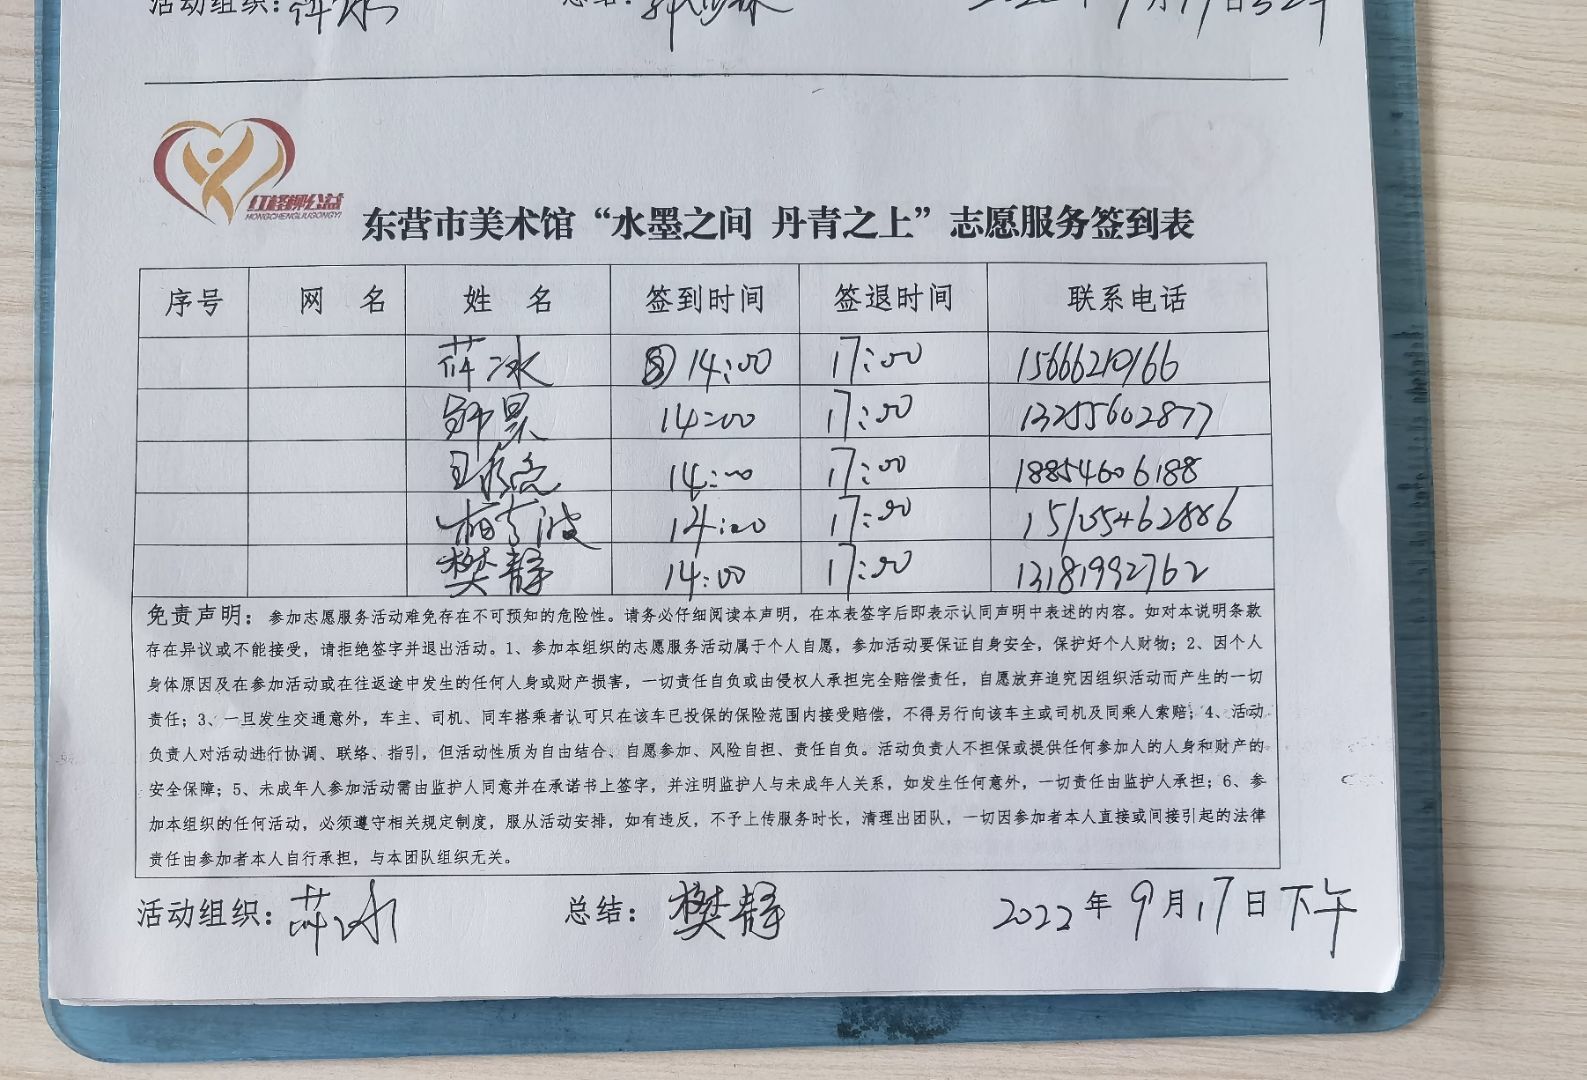 活动组织：薛冰 总结： 2022年9月17日上午
红柽柳公益
HONGCHENGLIUGONGYI
东营市美术馆“水墨之间 丹青之上”志愿服务签到表
序号 网 名 姓 名 签到时间 签退时间 联系电话
薛冰 14:00 17:00 15666210166
14:00 17:00 13255602877
14:00 17:00 18854606188
14:00 17:00 15105462886
樊静 14:00 17:00 13181992762
免责声明：参加志愿服务活动难免存在不可预知的危险性。请务必仔细阅读本声明，在本表签字后即表示认同声明中表述的内容。如对本说明条款
存在异议或不能接受，请拒绝签字并退出活动。1、参加本组织的志愿服务活动属于个人自愿，参加活动要保证自身安全，保护好个人财物；2、因个人
身体原因及在参加活动或在往返途中发生的任何人身或财产损害，一切责任自负或由侵权人承担完全赔偿责任，自愿放弃追究因组织活动而产生的一切
责任；3、一旦发生交通意外，车主、司机、同车搭乘者认可只在该车已投保的保险范围内接受赔偿，不得另行向该车主或司机及同乘人索赔；4、活动
负责人对活动进行协调、联络、指引，但活动性质为自由结合、自愿参加、风险自担、责任自负。活动负责人不担保或提供任何参加人的人身和财产的
安全保障；5、未成年人参加活动需由监护人同意并在承诺书上签字，并注明监护人与未成年人关系，如发生任何意外，一切责任由监护人承担；6、参
加本组织的任何活动，必须遵守相关规定制度，服从活动安排，如有违反，不予上传服务时长，清理出团队，一切因参加者本人直接或间接引起的法律
责任由参加者本人自行承担，与本团队组织无关。
活动组织：薛冰 总结：樊静 2022年9月17日下午